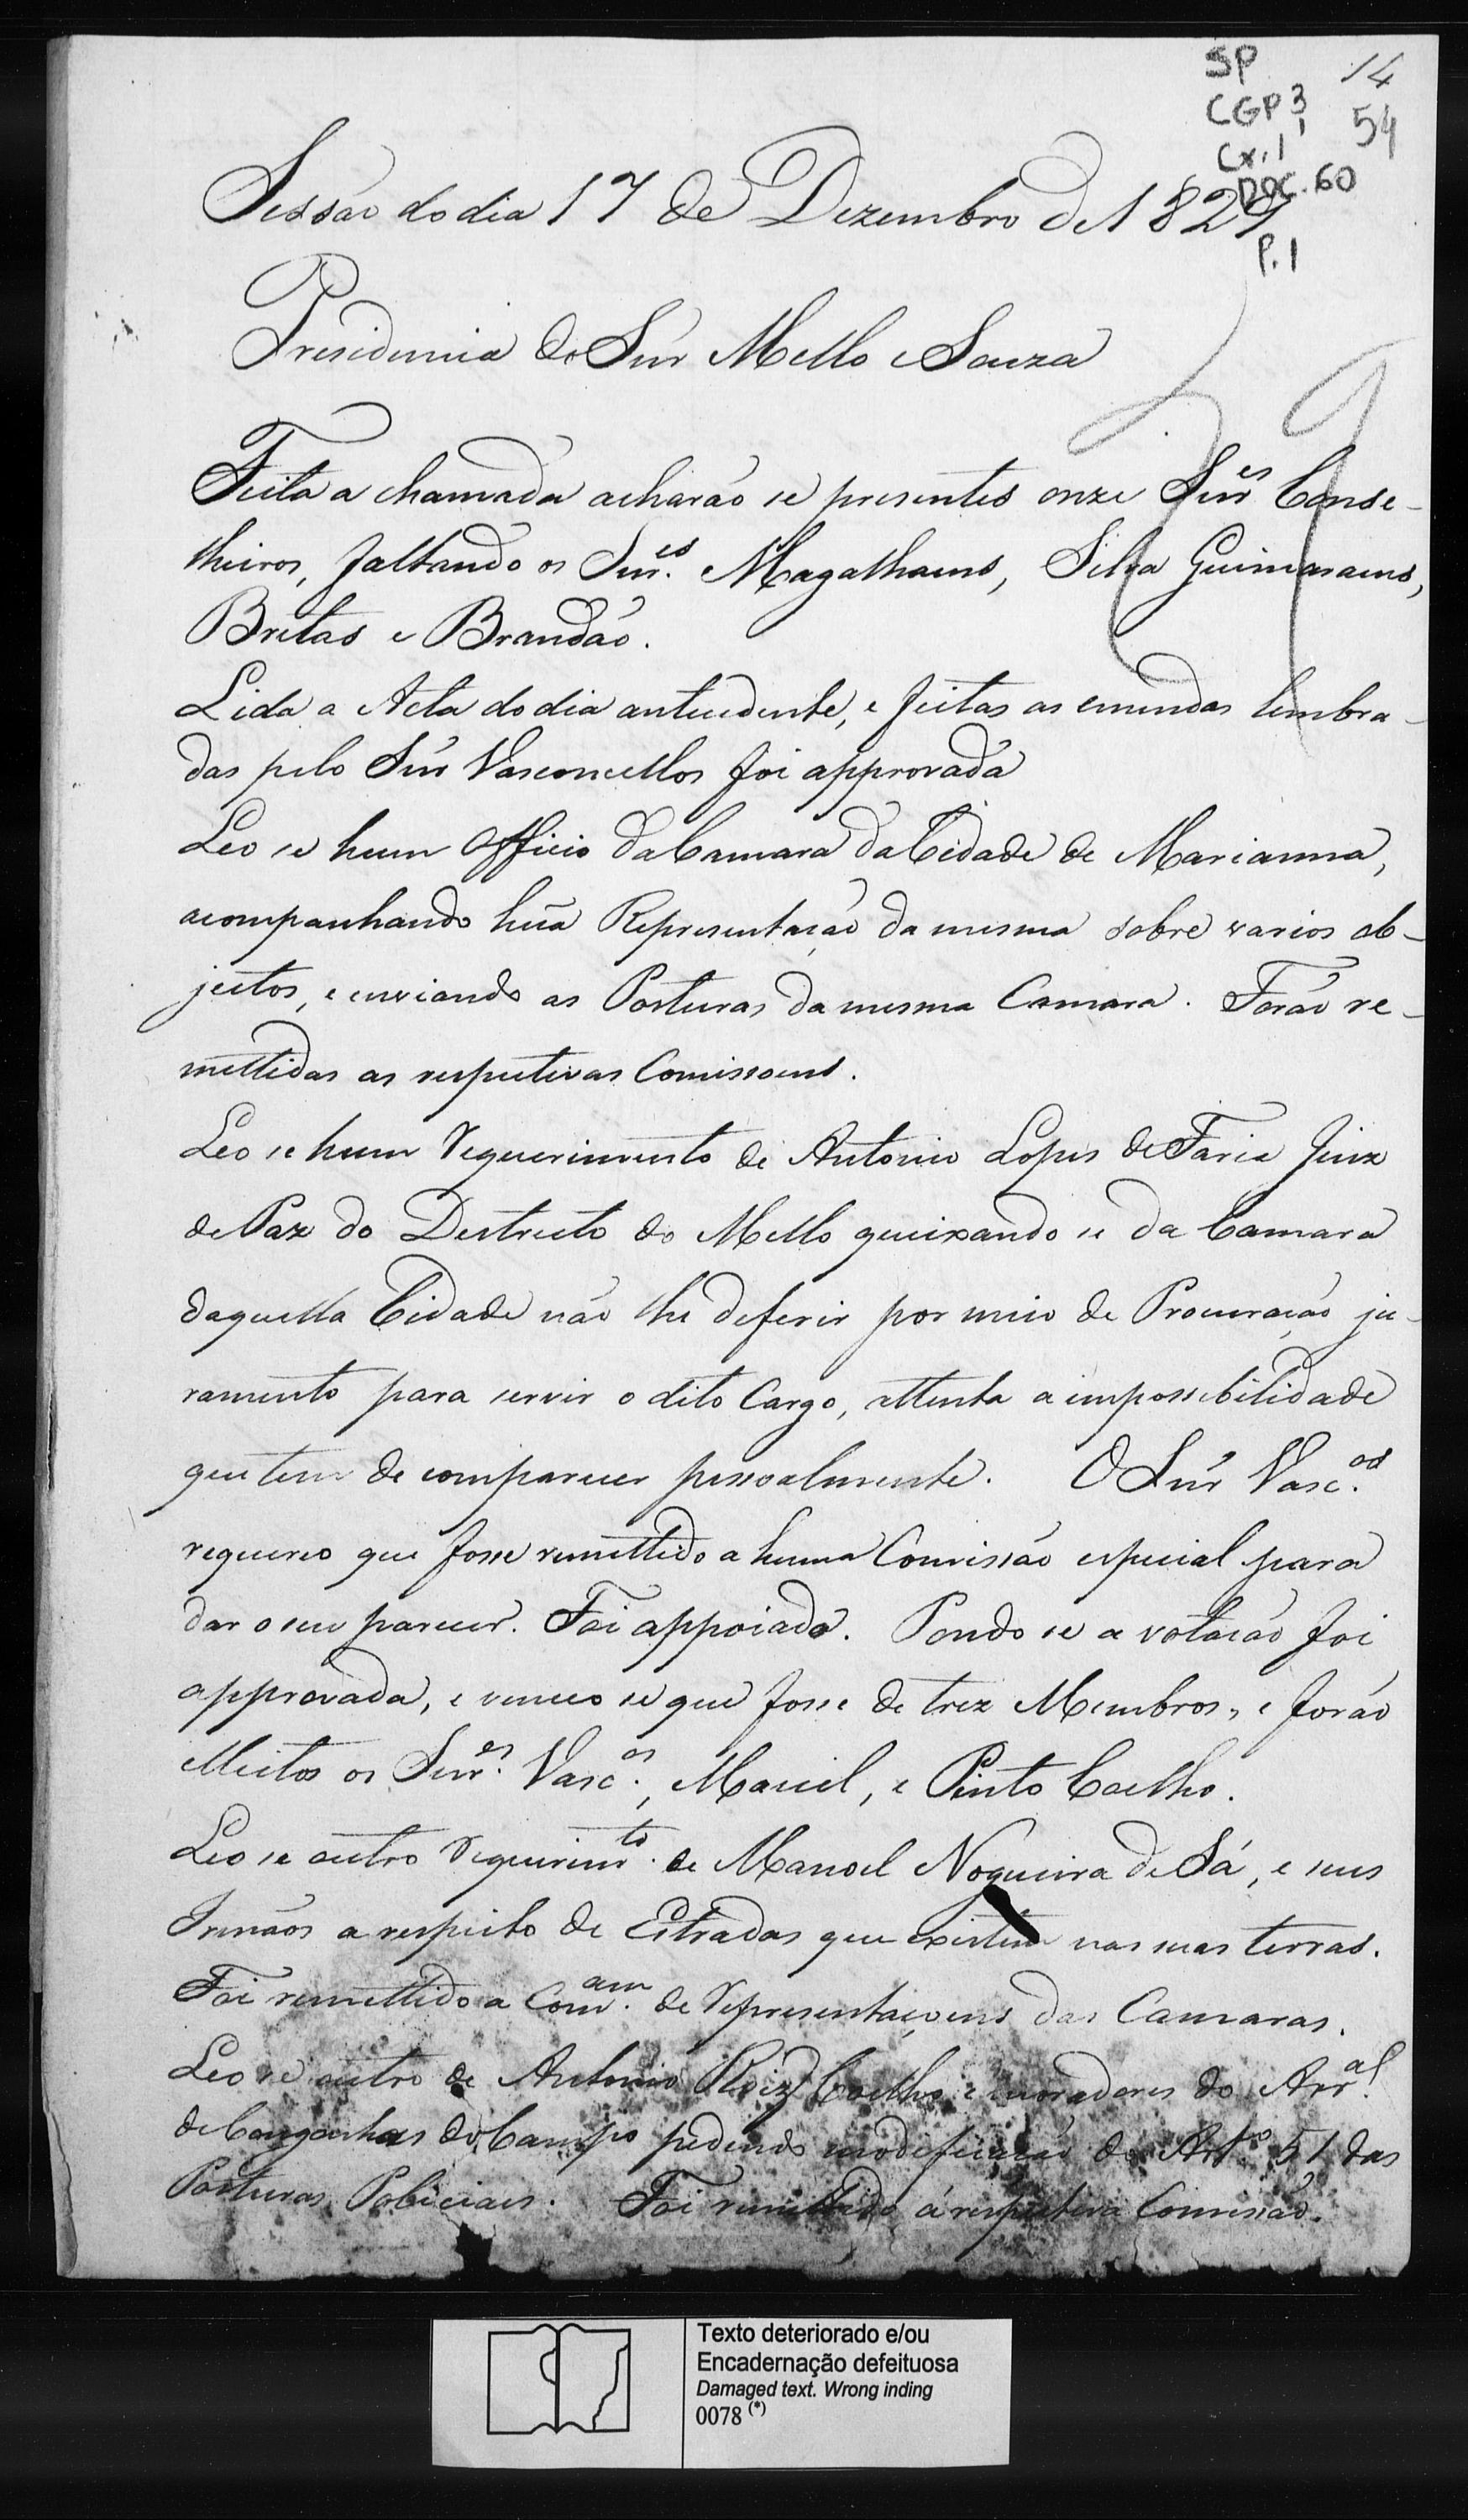 SP
CGP 3,
Cx. 1
DOC. 60
P. 1
14
54
Sessão do dia 17 de Dezembro de 1829
Presidencia do Snr Mello e Souza
Feita a chamada acharão se presentes onze Snr.es Conse-
lheiros, faltando os Snr.es Magalhaens, Silva Guimaraens,
Bretas e Brandão.
Lida a Acta do dia antecedente, e feitas as emendas lembra-
das pelo Snr Vasconcellos foi approvada
Leo se hum Officio da Camara da Cidade de Marianna,
acompanhando hũa Representação da mesma sobre varios ob-
jectos, e enviando as Posturas da mesma Camara. Forão re-
mettidas as respectivas Comissoens.
Leo se hum Requerimento de Antonio Lopes de Faria Juiz
de Paz do Destricto do Mello queixando se da Camara
daquella Cidade não lhe deferir por meio de Procuração ju-
ramento para servir o dito Cargo, attenta a impossebilidade
que tem de comparecer pessoalmente. O Snr Vasc.os
requereo que fosse remettido a huma Comissão especial para
dar o seu parecer. Foi appoiada. Pondo se a votação foi
approvada, e venceo se que fosse de trez Membros, e forão
elleitos os Snr.es Vasc.os, Maciel, e Pinto Coelho.
Leo se outro Requerim.to de Manoel Nogueira de Sá, e seus
Irmãos a respeito de Estradas que existem nas suas terras.
Foi remettido a Com.am de Representaçoens das Camaras.
Leo se outro de Antonio Roiz Coelho e moradores do Arr.al
de Congonhas do Campo pedindo modeficação do Art.o 51 das
Posturas Policiais. Foi remettido á respectiva Comissão.
Texto deteriorado e/ou
Encadernação defeituosa
Damaged text. Wrong inding
0078 (*)